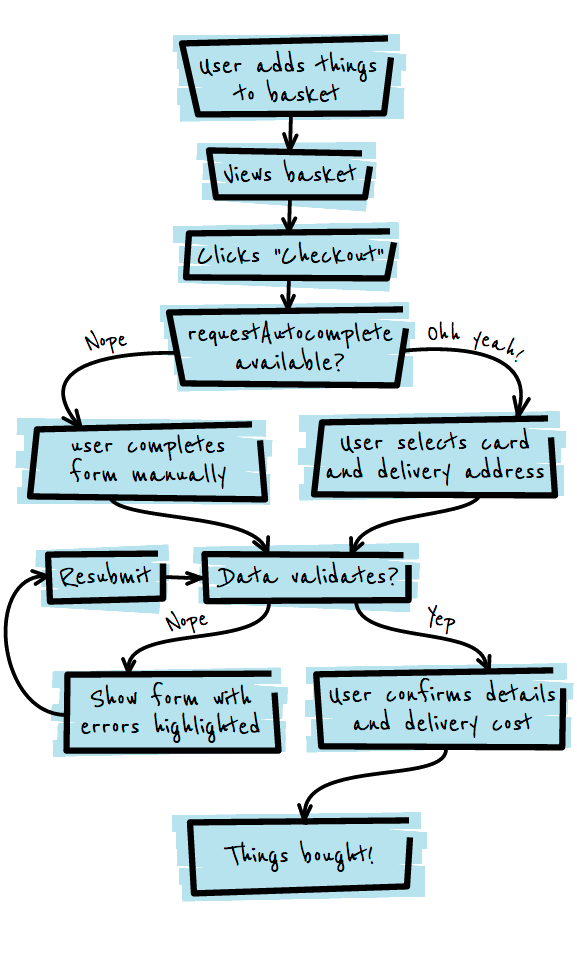 User adds things
to basket
Views basket
Clicks "Checkout"
requestAutocomplete
available?
Nope
Ohh yeah!
user completes
form manually
User selects card
and delivery address
Resubmit
Data validates?
Nope
Yep
Show form with
errors highlighted
User confirms details
and delivery cost
Things bought!